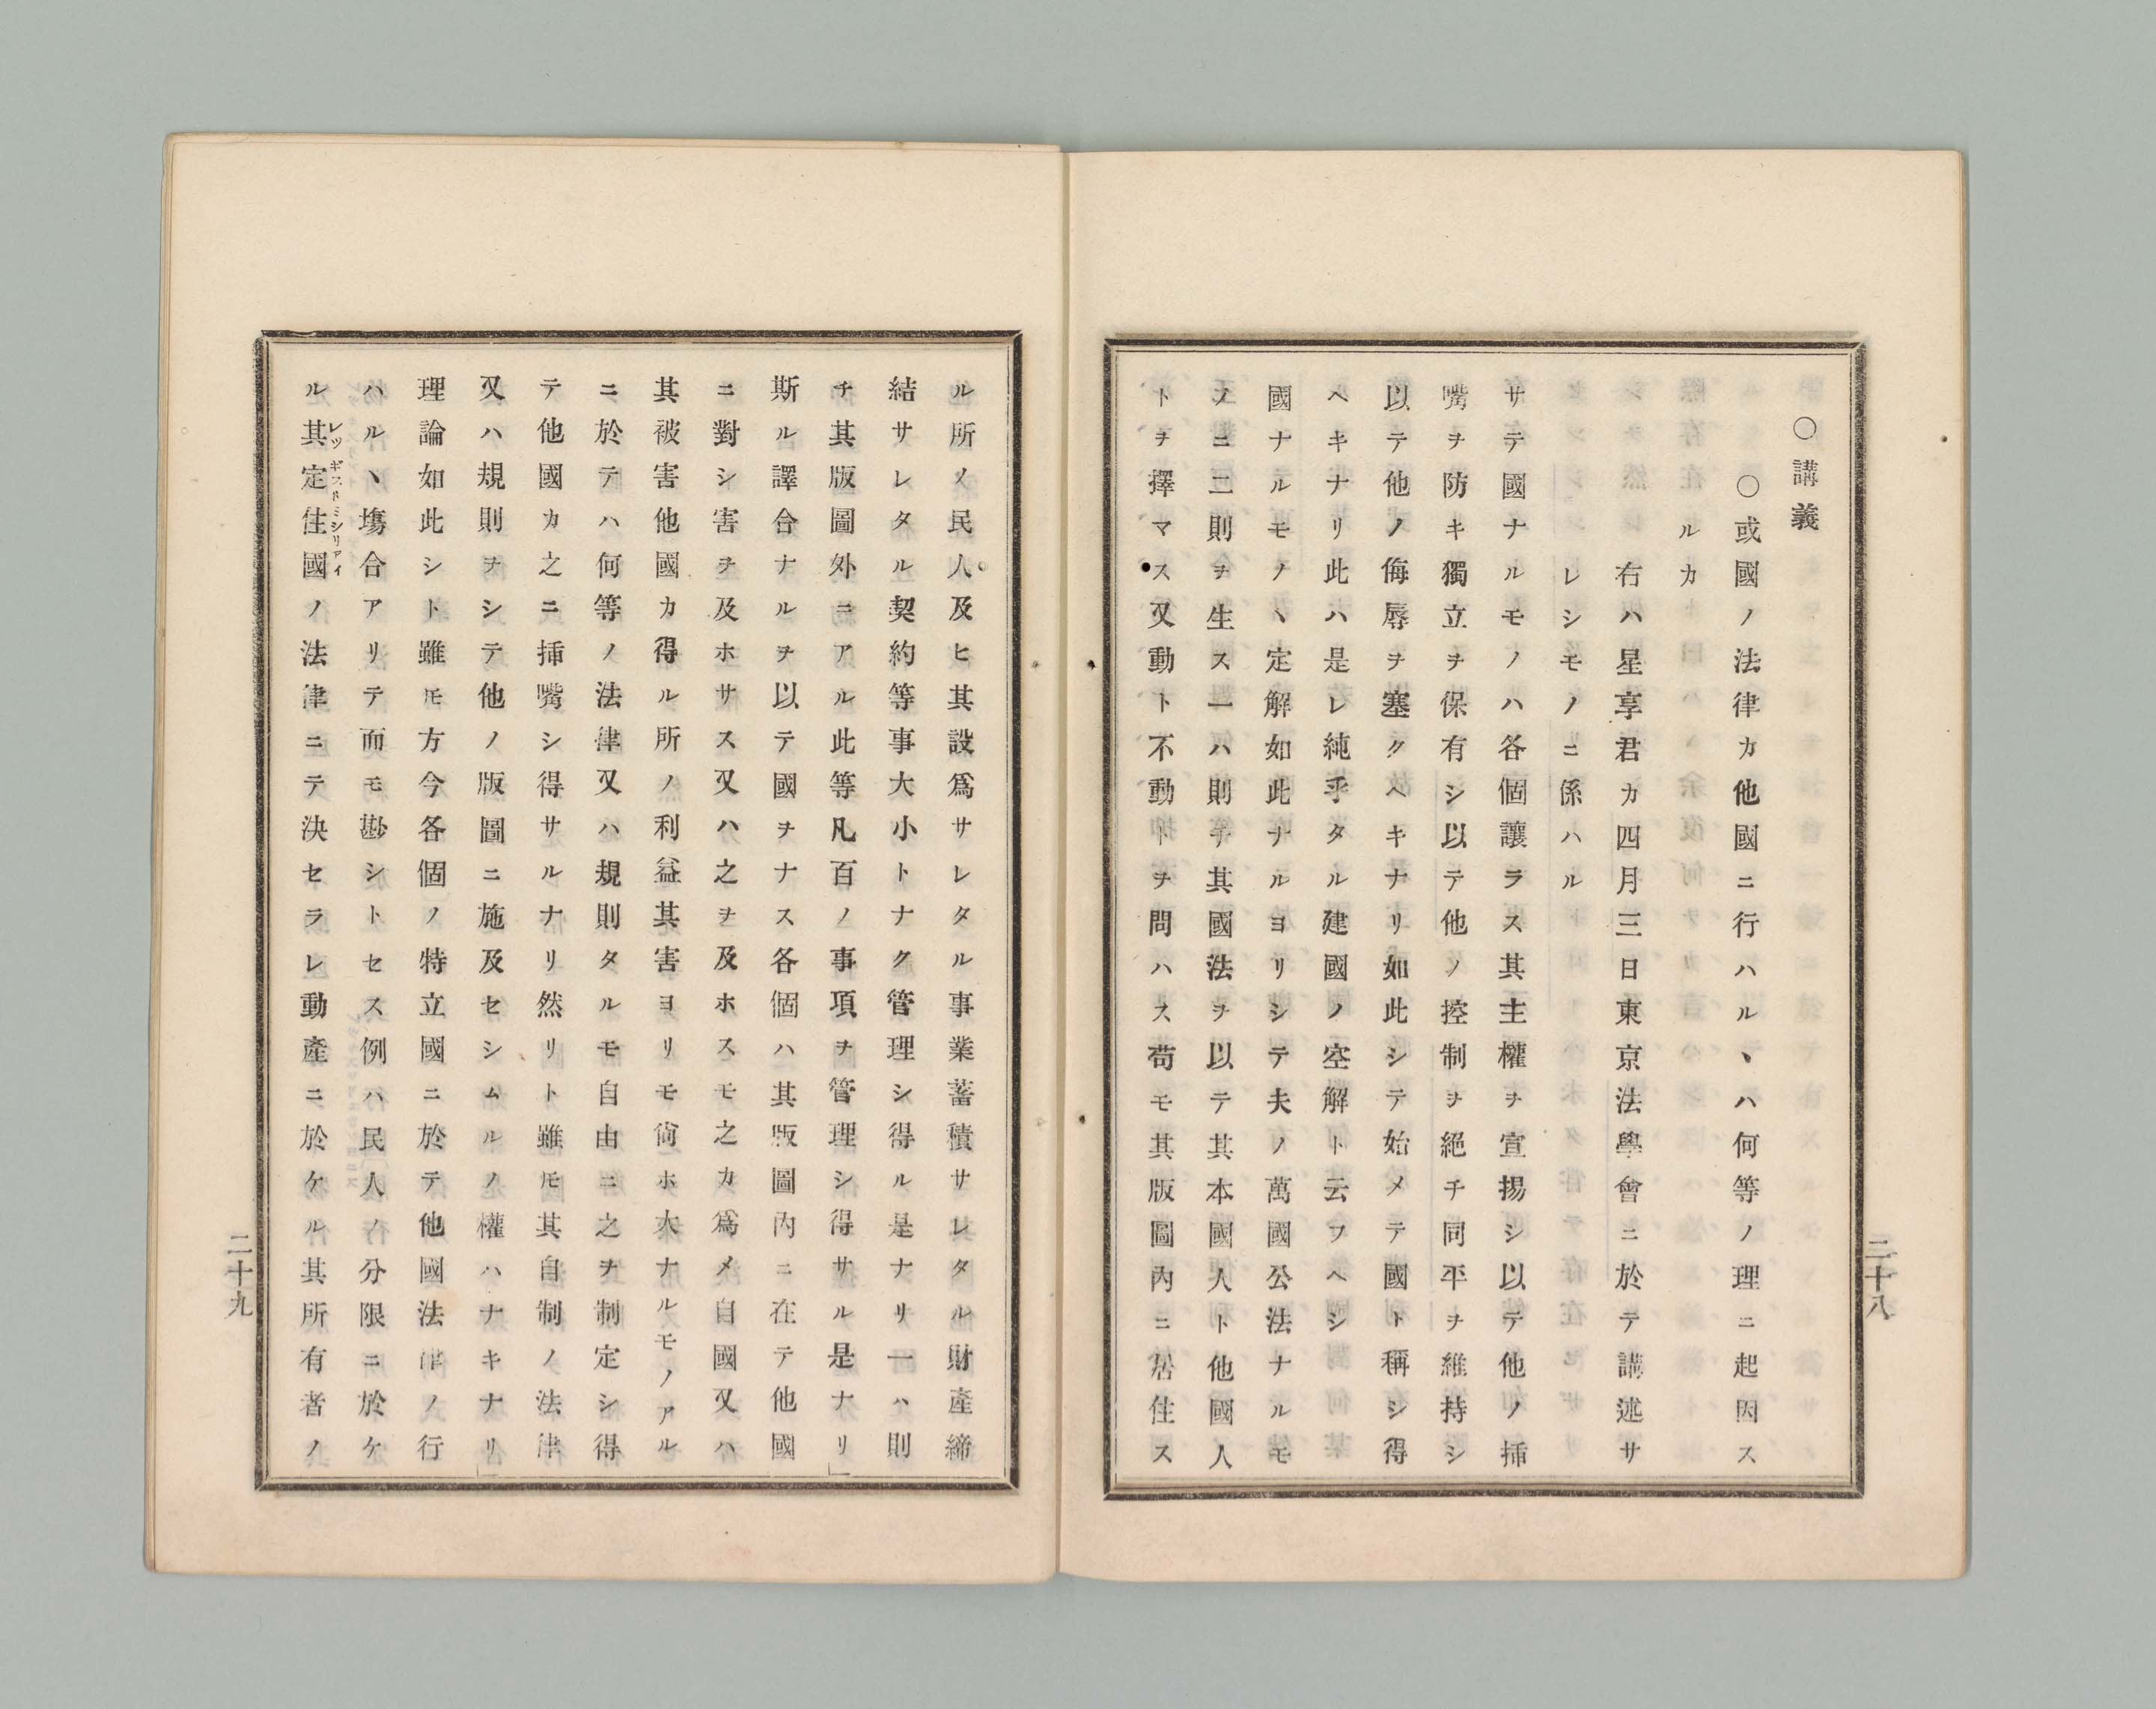 ○講義
○或國ノ法律カ他國ニ行ハルヽハ何等ノ理ニ起因ス
ルカ
右ハ星亨君カ四月三日東京法學會ニ於テ講述サ
レシモノニ係ハル
サテ國ナルモノハ各個讓ラス其主權ヲ宣揚シ以テ他ノ挿
嘴ヲ防キ獨立ヲ保有シ以テ他ノ控制ヲ絕チ同平ヲ維持シ
以テ他ノ侮辱ヲ塞クヘキナリ如此シテ始メテ國ト稱シ得
ヘキナリ此ハ是レ純乎タル建國ノ空解ト云フヘシ
國ナルモノヽ定解如此ナルヨリシテ夫ノ萬國公法ナルモ
ノニ二則ヲ生ス一ハ則チ其國法ヲ以テ其本國人ト他國人
トヲ擇マス又動ト不動トヲ問ハス苟モ其版圖內ニ居住ス
二十八
ル所ノ民人及ヒ其設爲サレタル事業蓄積サレタル財產締
結サレタル契約等事大小トナク管理シ得ルナリ一ハ則
チ其版圖外ニアル此等凡百ノ事項ヲ管理シ得サル是ナリ
斯ル譯合ナルヲ以テ國ヲナス各個ハ其版圖內ニ在テ他國
ニ對シ害ヲ及ホサス又ハ之ヲ及ホスモ之カ爲メ自國又ハ
其被害他國カ得ル所ノ利益其害ヨリモ尙ホ大ナルモノアル
ニ於テハ何等ノ法律又ハ規則タルモ自由ニ之ヲ制定シ得
テ他國カ之ニ挿嘴シ得サルナリ然リト雖モ其自制ノ法律
又ハ規則ヲシテ他ノ版圖ニ施及セシムルノ權ハナキナリ
理論如此シト雖モ方今各個ノ特立國ニ於テ他國法律ノ行
ハルヽ塲合アリテ而モ尠シトセス例ハ民人ノ分限ニ於ケ
ル其定住國ノ法律ニテ決セラレ動產ニ於ケル其所有者ノ
二十九